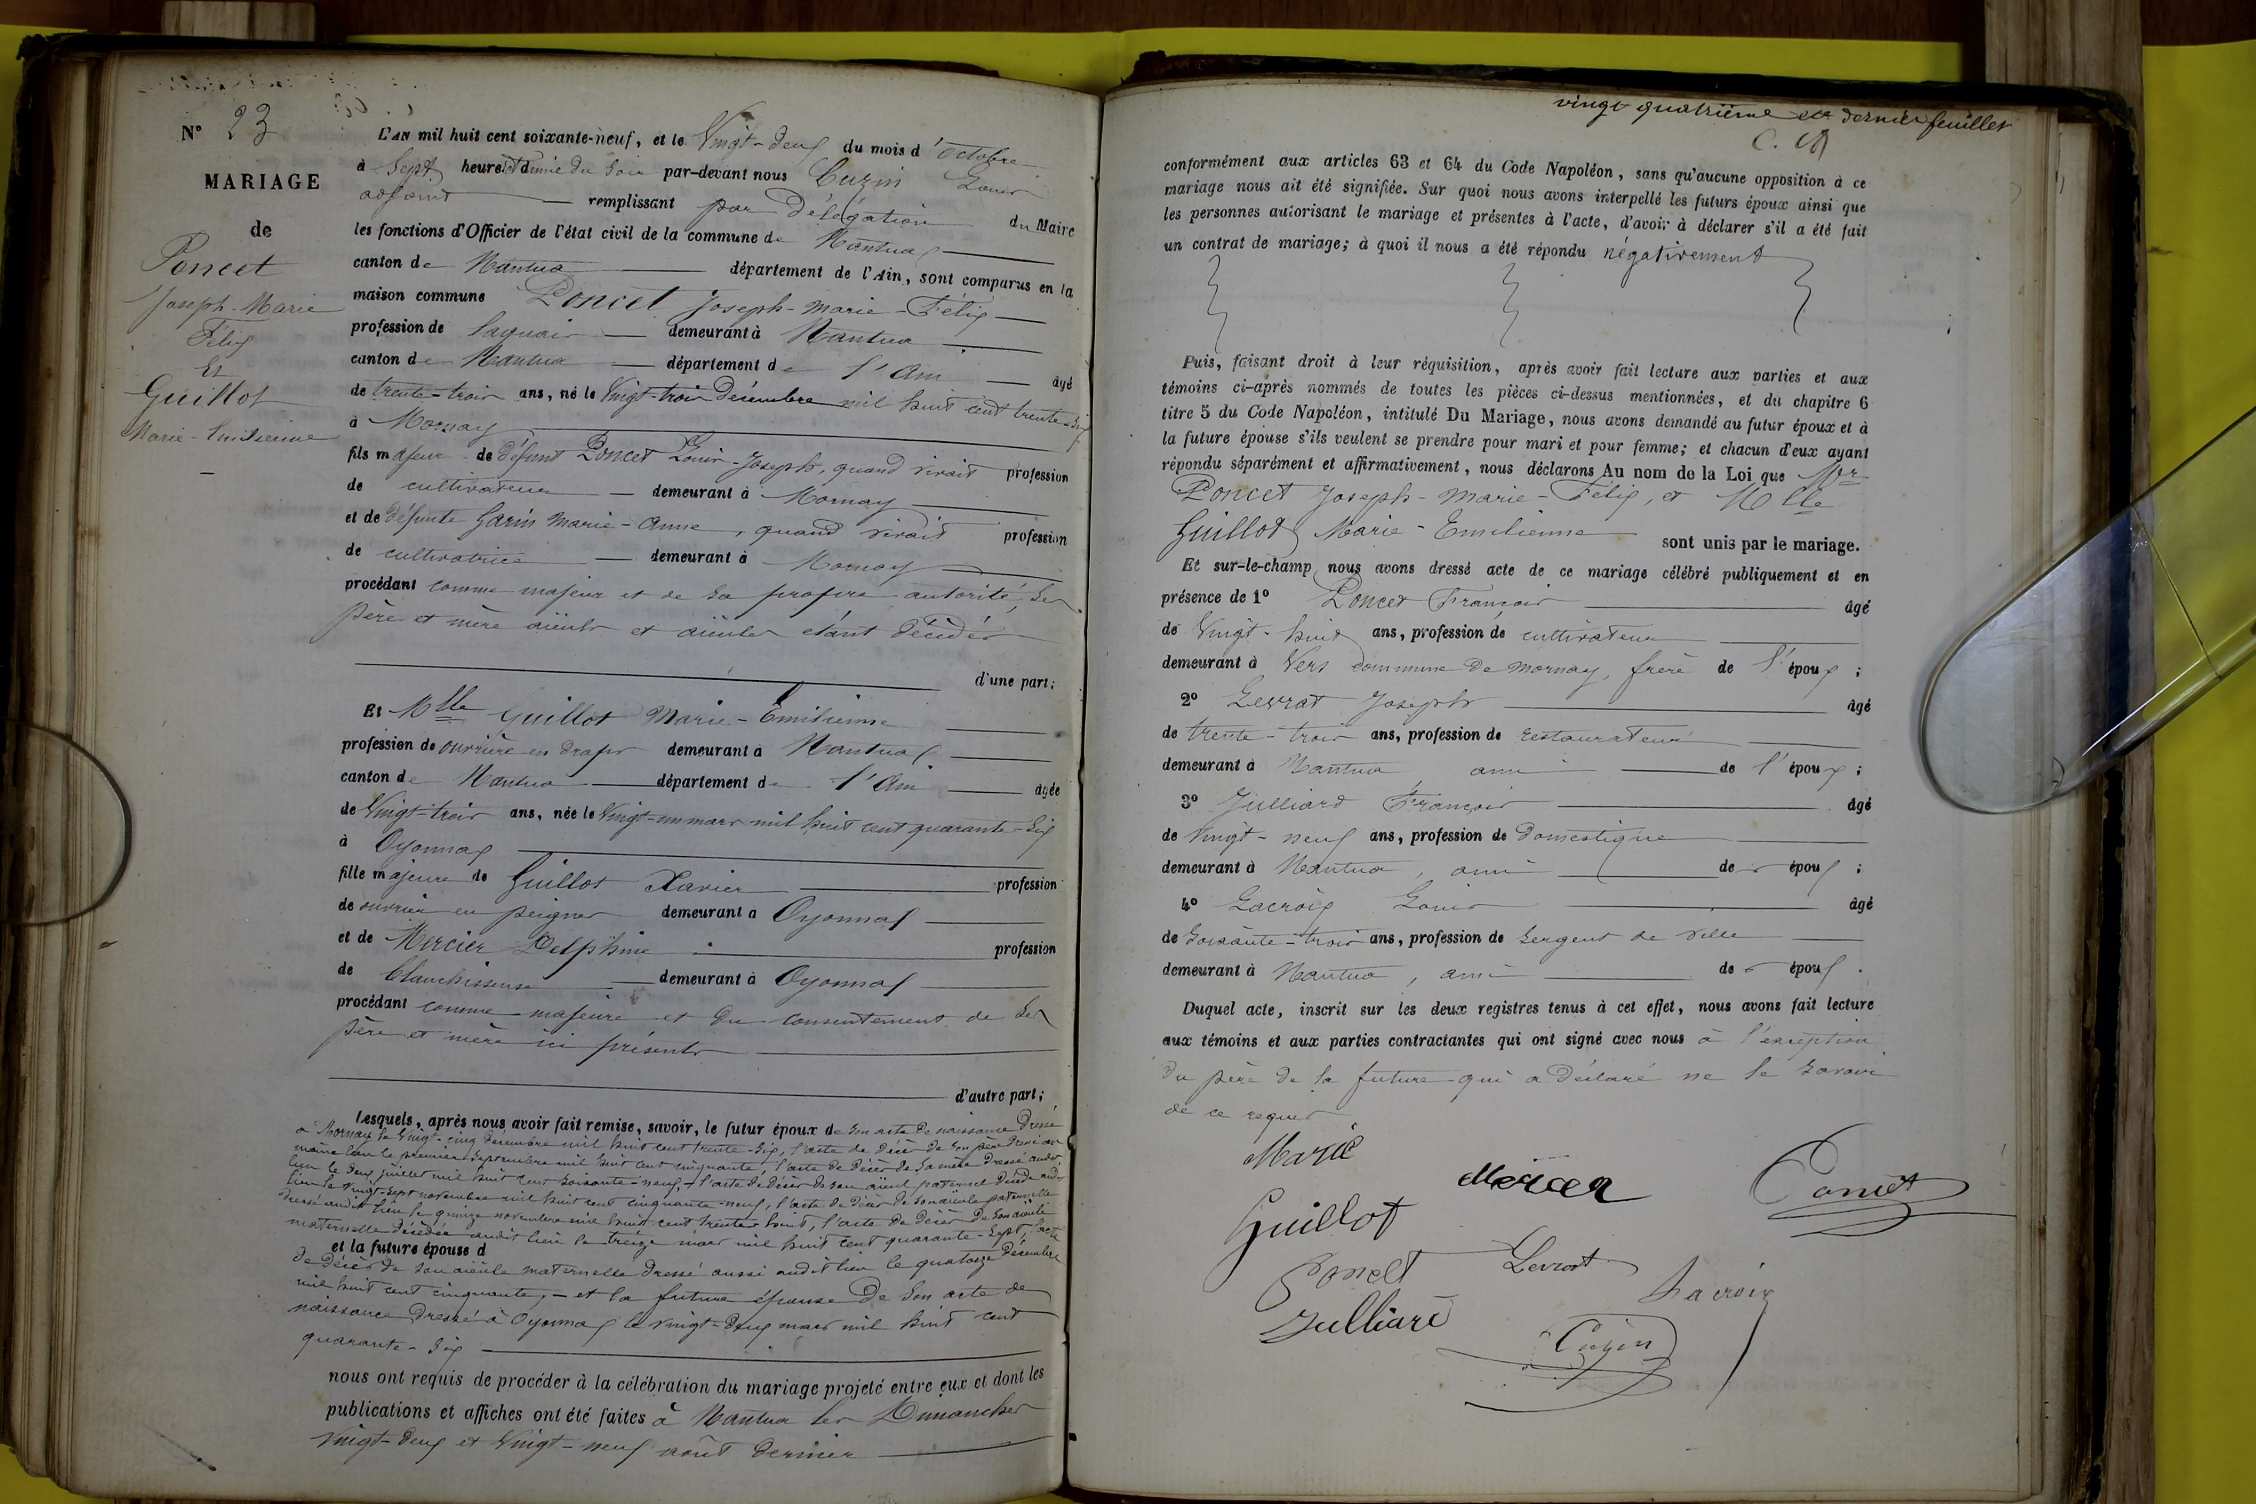 N° 23
MARIAGE
de
Poncet
Joseph-Marie
Félix
Et
Guillot
Marie-Emilienne
L'AN mil huit cent soixante-neuf, et le Vingt-deux du mois d'octobre
à Sept heures et demie du soir par-devant nous Cuzin Louis
adjoint remplissant par Délégation du Maire
les fonctions d'Officier de l'état civil de la commune de Nantua
canton de Nantua département de l'Ain, sont comparus en la
maison commune Poncet Joseph-Marie-Félix
profession de laquais demeurant à Nantua
canton de Nantua département de l'Ain âgé
de trente-trois ans, né le Vingt-trois Décembre mil huit cent trente-six
à Mornay
fils majeur de défunt Poncet Louis-Joseph, quand vivait profession
de cultivateur demeurant à Mornay
et de défunte Garin Marie-Anne, quand vivait profession
de cultivatrice demeurant à Mornay
procédant comme majeur et de sa propre autorité, ses
père et mère aïeuls et aïeules étant décédés
d'une part;
Et Mlle Guillot Marie-Emilienne
profession de ouvrière en draps demeurant à Nantua
canton de Nantua département de l'Ain âgée
de Vingt-trois ans, née le Vingt-un mars mil huit cent quarante-six
à Oyonnax
fille majeure de Guillot Xavier profession
de ouvrier en peignes demeurant à Oyonnax
et de Mercier Delphine profession
de blanchisseuse demeurant à Oyonnax
procédant comme majeure et du consentement de ses
père et mère ici présents
d'autre part;
Lesquels, après nous avoir fait remise, savoir, le futur époux de son acte de naissance dressé
à Mornay le Vingt-cinq Décembre mil huit cent trente-six, l'acte de décès de son père dressé au
même lieu le premier Septembre mil huit cent cinquante, l'acte de décès de sa mère dressé audit
lieu le deux juillet mil huit cent soixante-neuf, l'acte de décès de son aïeul paternel décédé audit
lieu le Vingt-sept novembre mil huit cent cinquante-neuf, l'acte de décès de son aïeule paternelle
dressé audit lieu le quinze novembre mil huit cent trente huit, l'acte de décès de son aïeule
maternelle décédée audit lieu le treize mars mil huit cent quarante-sept, l'acte
et la future épouse d
de décès de son aïeule maternelle dressé aussi audit lieu le quatorze décembre
mil huit cent cinquante, - et la future épouse de son acte de
naissance dressé à Oyonnax le vingt-deux mars mil huit cent
quarante-six
nous ont requis de procéder à la célébration du mariage projeté entre eux et dont les
publications et affiches ont été faites à Nantua les Dimanches
Vingt-deux et Vingt-neuf août dernier
vingt quatrième et dernier feuillet
conformément aux articles 63 et 64 du Code Napoléon, sans qu'aucune opposition à ce
mariage nous ait été signifiée. Sur quoi nous avons interpellé les futurs époux ainsi que
les personnes autorisant le mariage et présentes à l'acte, d'avoir à déclarer s'il a été fait
un contrat de mariage; à quoi il nous a été répondu négativement
Puis, faisant droit à leur réquisition, après avoir fait lecture aux parties et aux
témoins ci-après nommés de toutes les pièces ci-dessus mentionnées, et du chapitre 6
titre 5 du Code Napoléon, intitulé Du Mariage, nous avons demandé au futur époux et à
la future épouse s'ils veulent se prendre pour mari et pour femme; et chacun d'eux ayant
répondu séparément et affirmativement, nous déclarons Au nom de la Loi que Mr
Poncet Joseph-Marie-Félix, et Mlle
Guillot Marie-Emilienne sont unis par le mariage.
Et sur-le-champ nous avons dressé acte de ce mariage célébré publiquement et en
présence de 1° Poncet François âgé
de Vingt-huit ans, profession de cultivateur
demeurant à Vers commune de Mornay, frère de l'époux;
2° Levrat Joseph âgé
de trente-trois ans, profession de restaurateur
demeurant à Nantua ami de l'époux;
3° Julliard François âgé
de Vingt-neuf ans, profession de domestique
demeurant à Nantua, ami des époux;
4° Lacroix Louis âgé
de Soixante-trois ans, profession de Sergent de Ville
demeurant à Nantua, ami des époux.
Duquel acte, inscrit sur les deux registres tenus à cet effet, nous avons fait lecture
aux témoins et aux parties contractantes qui ont signé avec nous à l'exception
du père de la future qui a déclaré ne le savoir
de ce requis
Marie
Mercier
Poncet
Guillot
Levrat
Poncet
Lacroix
Julliard
Cuzin